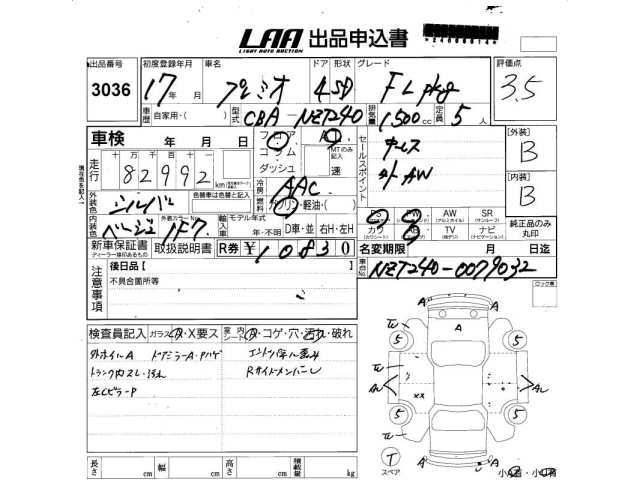 LAA 出品申込書
LIGHT AUTO AUCTION
出品番号 初度登録年月 車名 ドア 形状 グレード 評価点
3036 17年 月 プレミオ 4 SD FL pkg 3.5
車歴 自家用・( ) 型式 CBA-NZT240 排気量 1500cc 定員 5人
車検 年 月 日 フロア AT セールスポイント ナビレス 【外装】
コラム MTのみ記入 B
走行 十万千百十 82992 km ダッシュ 速 外AW 【内装】
現在色を記入 B
外装色 シルバー 色替車は色替と記入 冷房 AAC
燃料 ガソリン・軽油・( )
内装色 ベージュ 外装カラーNo. 1F7 輸入車 モデル年式 D車・並 右H・左H
年・不明
AW SR
(アルミホイル) (サンルーフ)
TV ナビ
(ナビゲーション)
純正品のみ
丸印
新車保証書 取扱説明書 R券 ¥10830 名変期限 月 日迄
ディーラー様印あるもの
車台No. NZT240-0079032
注意事項 後日品【 】
不具合箇所等
ロック車
検査員記入 ガラス A・X要ス 室内 シート A・コゲ・穴・汚れ・破れ
外ホイルA ドアミラーA・Pハゲ
トランク内スレ・汚れ Rサイドメンバー
左CピラーP
A A A
5 5
A
5 5
T
スペア
A A
長さ cm 幅 cm 高さ cm 積載量 kg